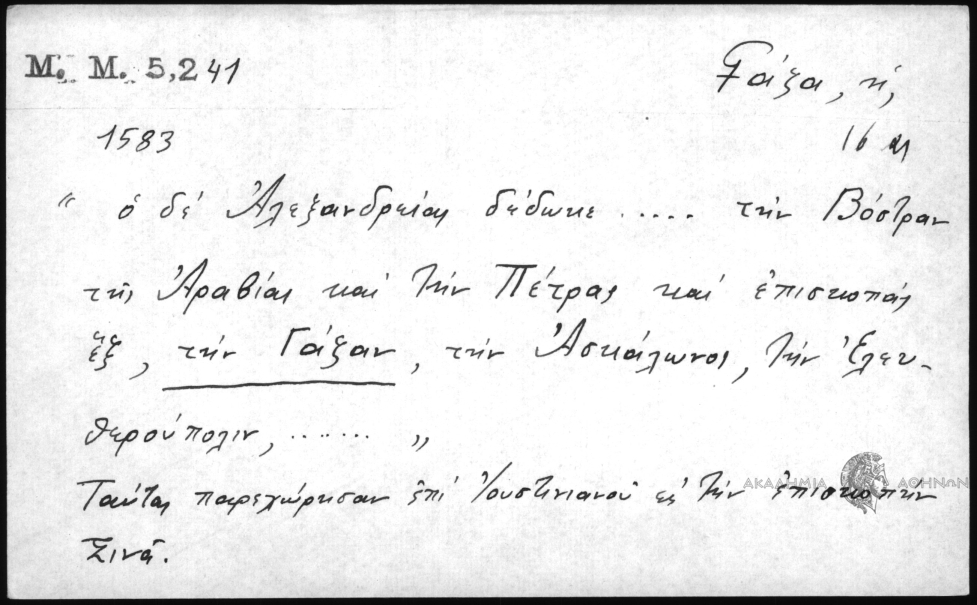 M. M. 5,241
Γάζα, ἡ,
1583
16
“ ὁ δέ Ἀλεξανδρείας δέδωκε ..... τήν Βόστραν
τῆς Ἀραβίας καί τήν Πέτρας καί ἐπισκοπάς
ἕξ, τήν Γάζαν, τήν Ἀσκάλωνος, τήν Ἐλευ-
θερούπολιν, ....... ”
Ταύτας παρεχώρησαν ἐπί Ἰουστινιανοῦ εἰς τήν ἐπισκοπήν
Σινᾶ.
ΑΚΑΔΗΜΙΑ ΑΘΗΝΩΝ